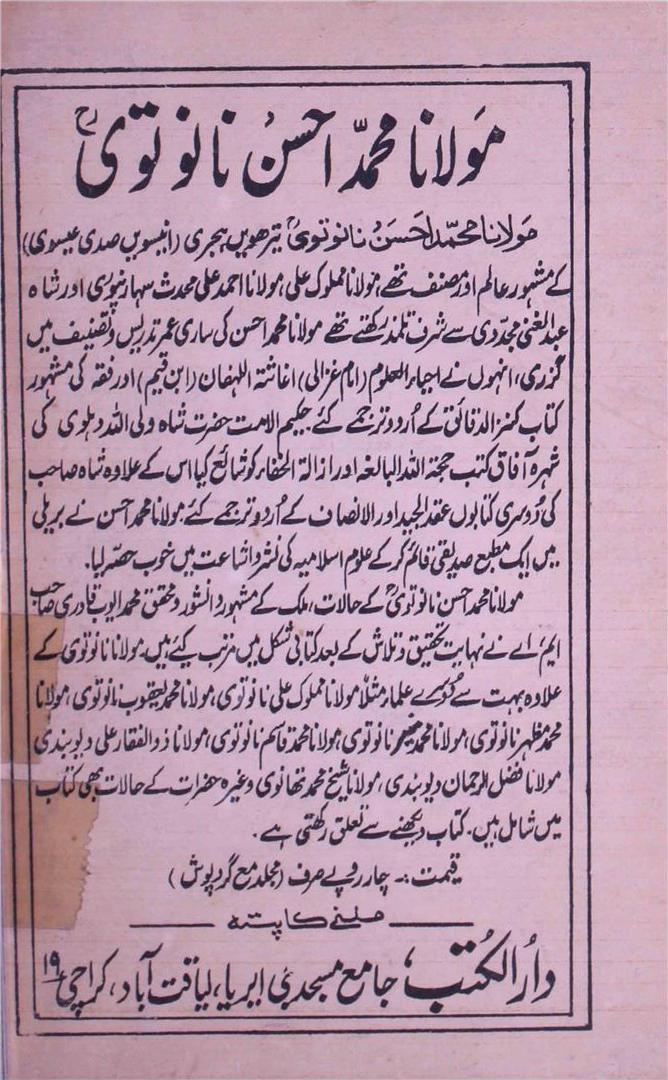 مولانا محمد احسن نانوتوی رح
مولانا محمد احسن نانوتوی رح تیرھویں ہجری (انیسویں صدی عیسوی)
کے مشہور عالم اور مصنف تھے، مولانا مملوک علی، مولانا احمد علی محدث سہارنپوری اور شاہ
عبدالغنی مجددی سے شرف تلمذ رکھتے تھے مولانا محمد احسن کی ساری عمر تدریس و تصنیف میں
گزری، انہوں نے احیاء العلوم (امام غزالی) اغاثتہ اللہفان (ابن قیم) اور فقہ کی مشہور
کتاب کنز الدقائق کے اُردو ترجمے کئے۔ حکیم الامت حضرت شاہ ولی اللہ دہلوی کی
شہرہ آفاق کتب حجتہ اللہ البالغہ اور ازالۃ الخفاء کو شائع کیا اس کے علاوہ شاہ صاحب
کی دُوسری کتابوں عقد الجید اور الانصاف کے اُردو ترجمے کئے، مولانا محمد احسن نے بریلی
میں ایک مطبع صدیقی قائم کر کے علوم اسلامیہ کی نشر و اشاعت میں خوب حصہ لیا۔
مولانا محمد احسن نانوتوی رح کے حالات، ملک کے مشہور دانشور و محقق محمد ایوب قادری صاحب
ایم، اے نے نہایت تحقیق و تلاش کے بعد کتابی شکل میں مرتب کیے ہیں۔ مولانا نانوتوی کے
علاوہ بہت سے دُوسرے علماء مثلاً مولانا مملوک علی نانوتوی، مولانا محمد یعقوب نانوتوی، مولانا
محمد مظہر نانوتوی، مولانا محمد منیر نانوتوی، مولانا محمد قاسم نانوتوی، مولانا ذوالفقار علی دیوبندی
مولانا فضل الرحمان دیوبندی، مولانا شیخ محمد تھانوی وغیرہ حضرات کے حالات بھی کتاب
میں شامل ہیں۔ کتاب دیکھنے سے تعلق رکھتی ہے۔
قیمت :۔ چار روپے صرف (مجلد مع گردپوش)
ملنے کا پتہ
دارُالکتب، جامع مسجد بی ایریا، لیاقت آباد، کراچی ۱۹